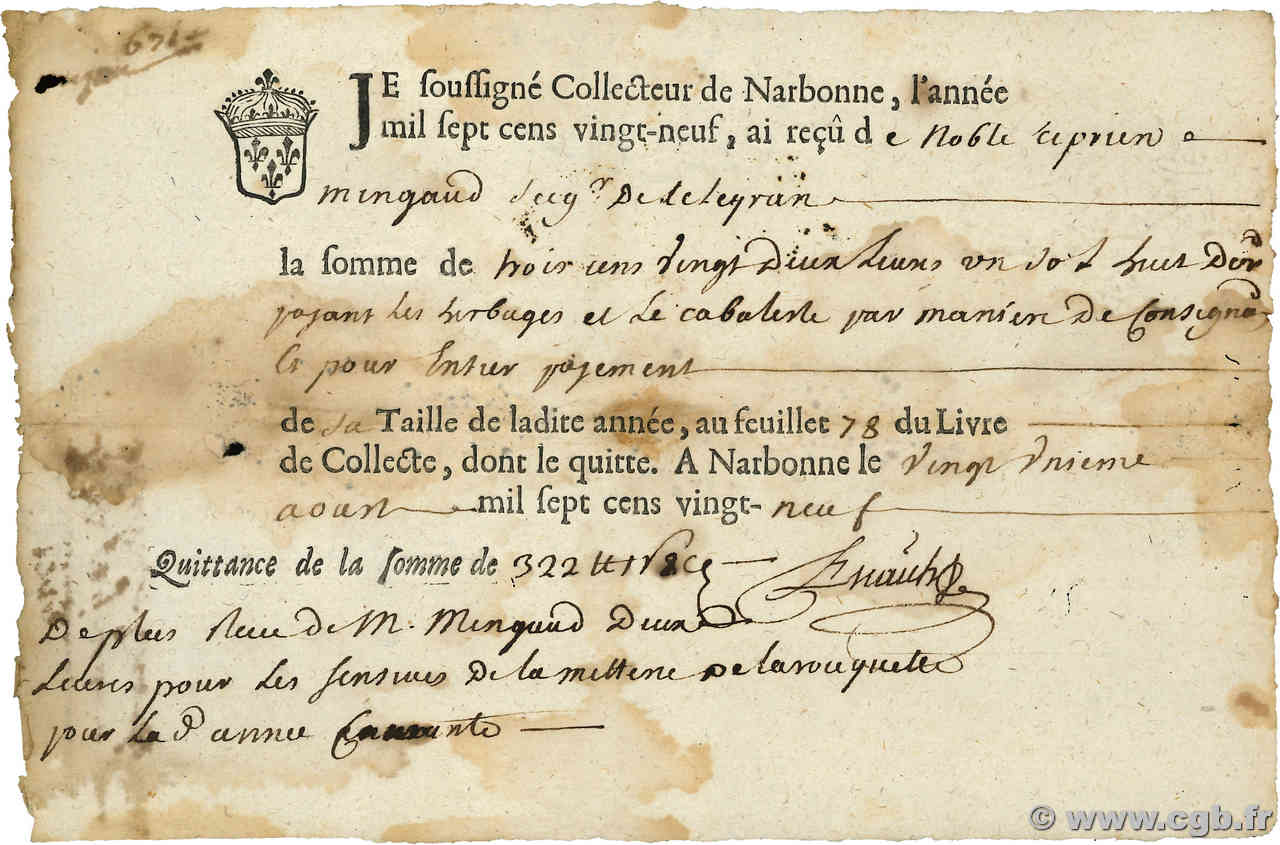 671
JE soussigné Collecteur de Narbonne, l'année
mil sept cens vingt-neuf, ai reçû de Noble Ciprien
mingaud
la somme de trois cens vingt deux livres un sol huit den
payant les herbages et le cabaliste par maniere de Consigna
et pour Entier payement
de sa Taille de ladite année, au feuillet 78 du Livre
de Collecte, dont le quitte. A Narbonne le vingt unieme
aoust mil sept cens vingt-neuf
Quittance de la somme de 322
De plus Receu de M. Mingaud deux
Livres pour les sensives de la metterie de larouquette
pour la d. annee Courante
© www.cgb.fr